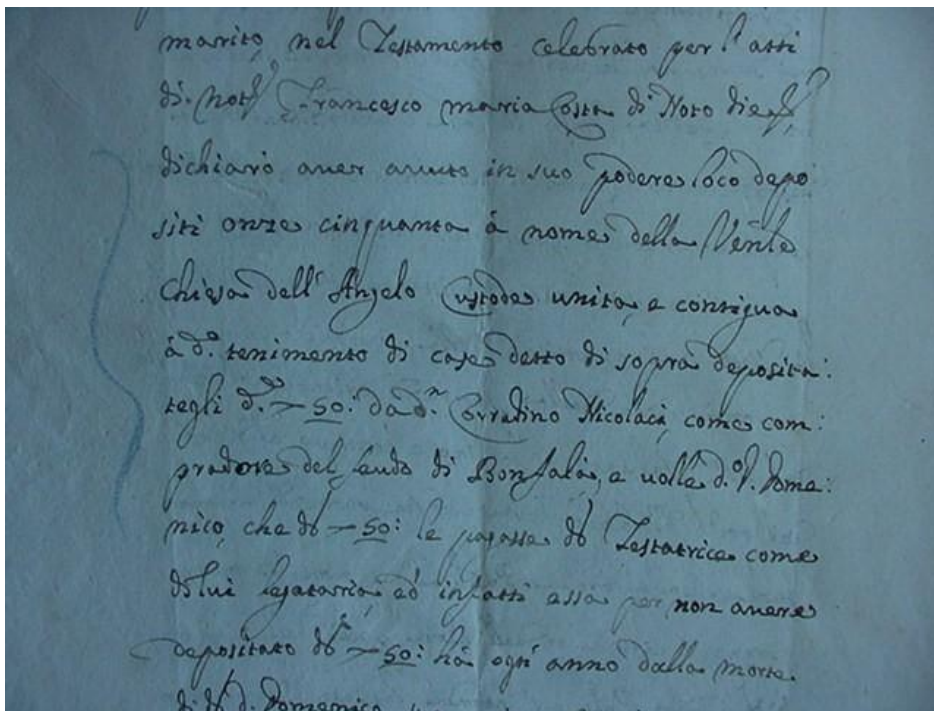 marito, nel Testamento celebrato per l'atti
di Not.r Francesco maria Costa di Noto die
dichiarò aver avuto in suo podere loco depo
siti onze cinquanta à nome della Ven:le
Chiesa dell' Angelo Custode unita, e contigua
à d.o tenimento di case detto di sopra deposita:
tegli d.e 50: da d.n Corradino Nicolaci, come com:
pradore del feudo di Bonfalà, e volle d.o D. Dome:
nico, che d.e 50: le pagasse d.a Testatrice come
di lui legataria, ed infatti essa per non avere
depositato d.e 50: hà ogn' anno dalla morte
di d.o D. Domenico